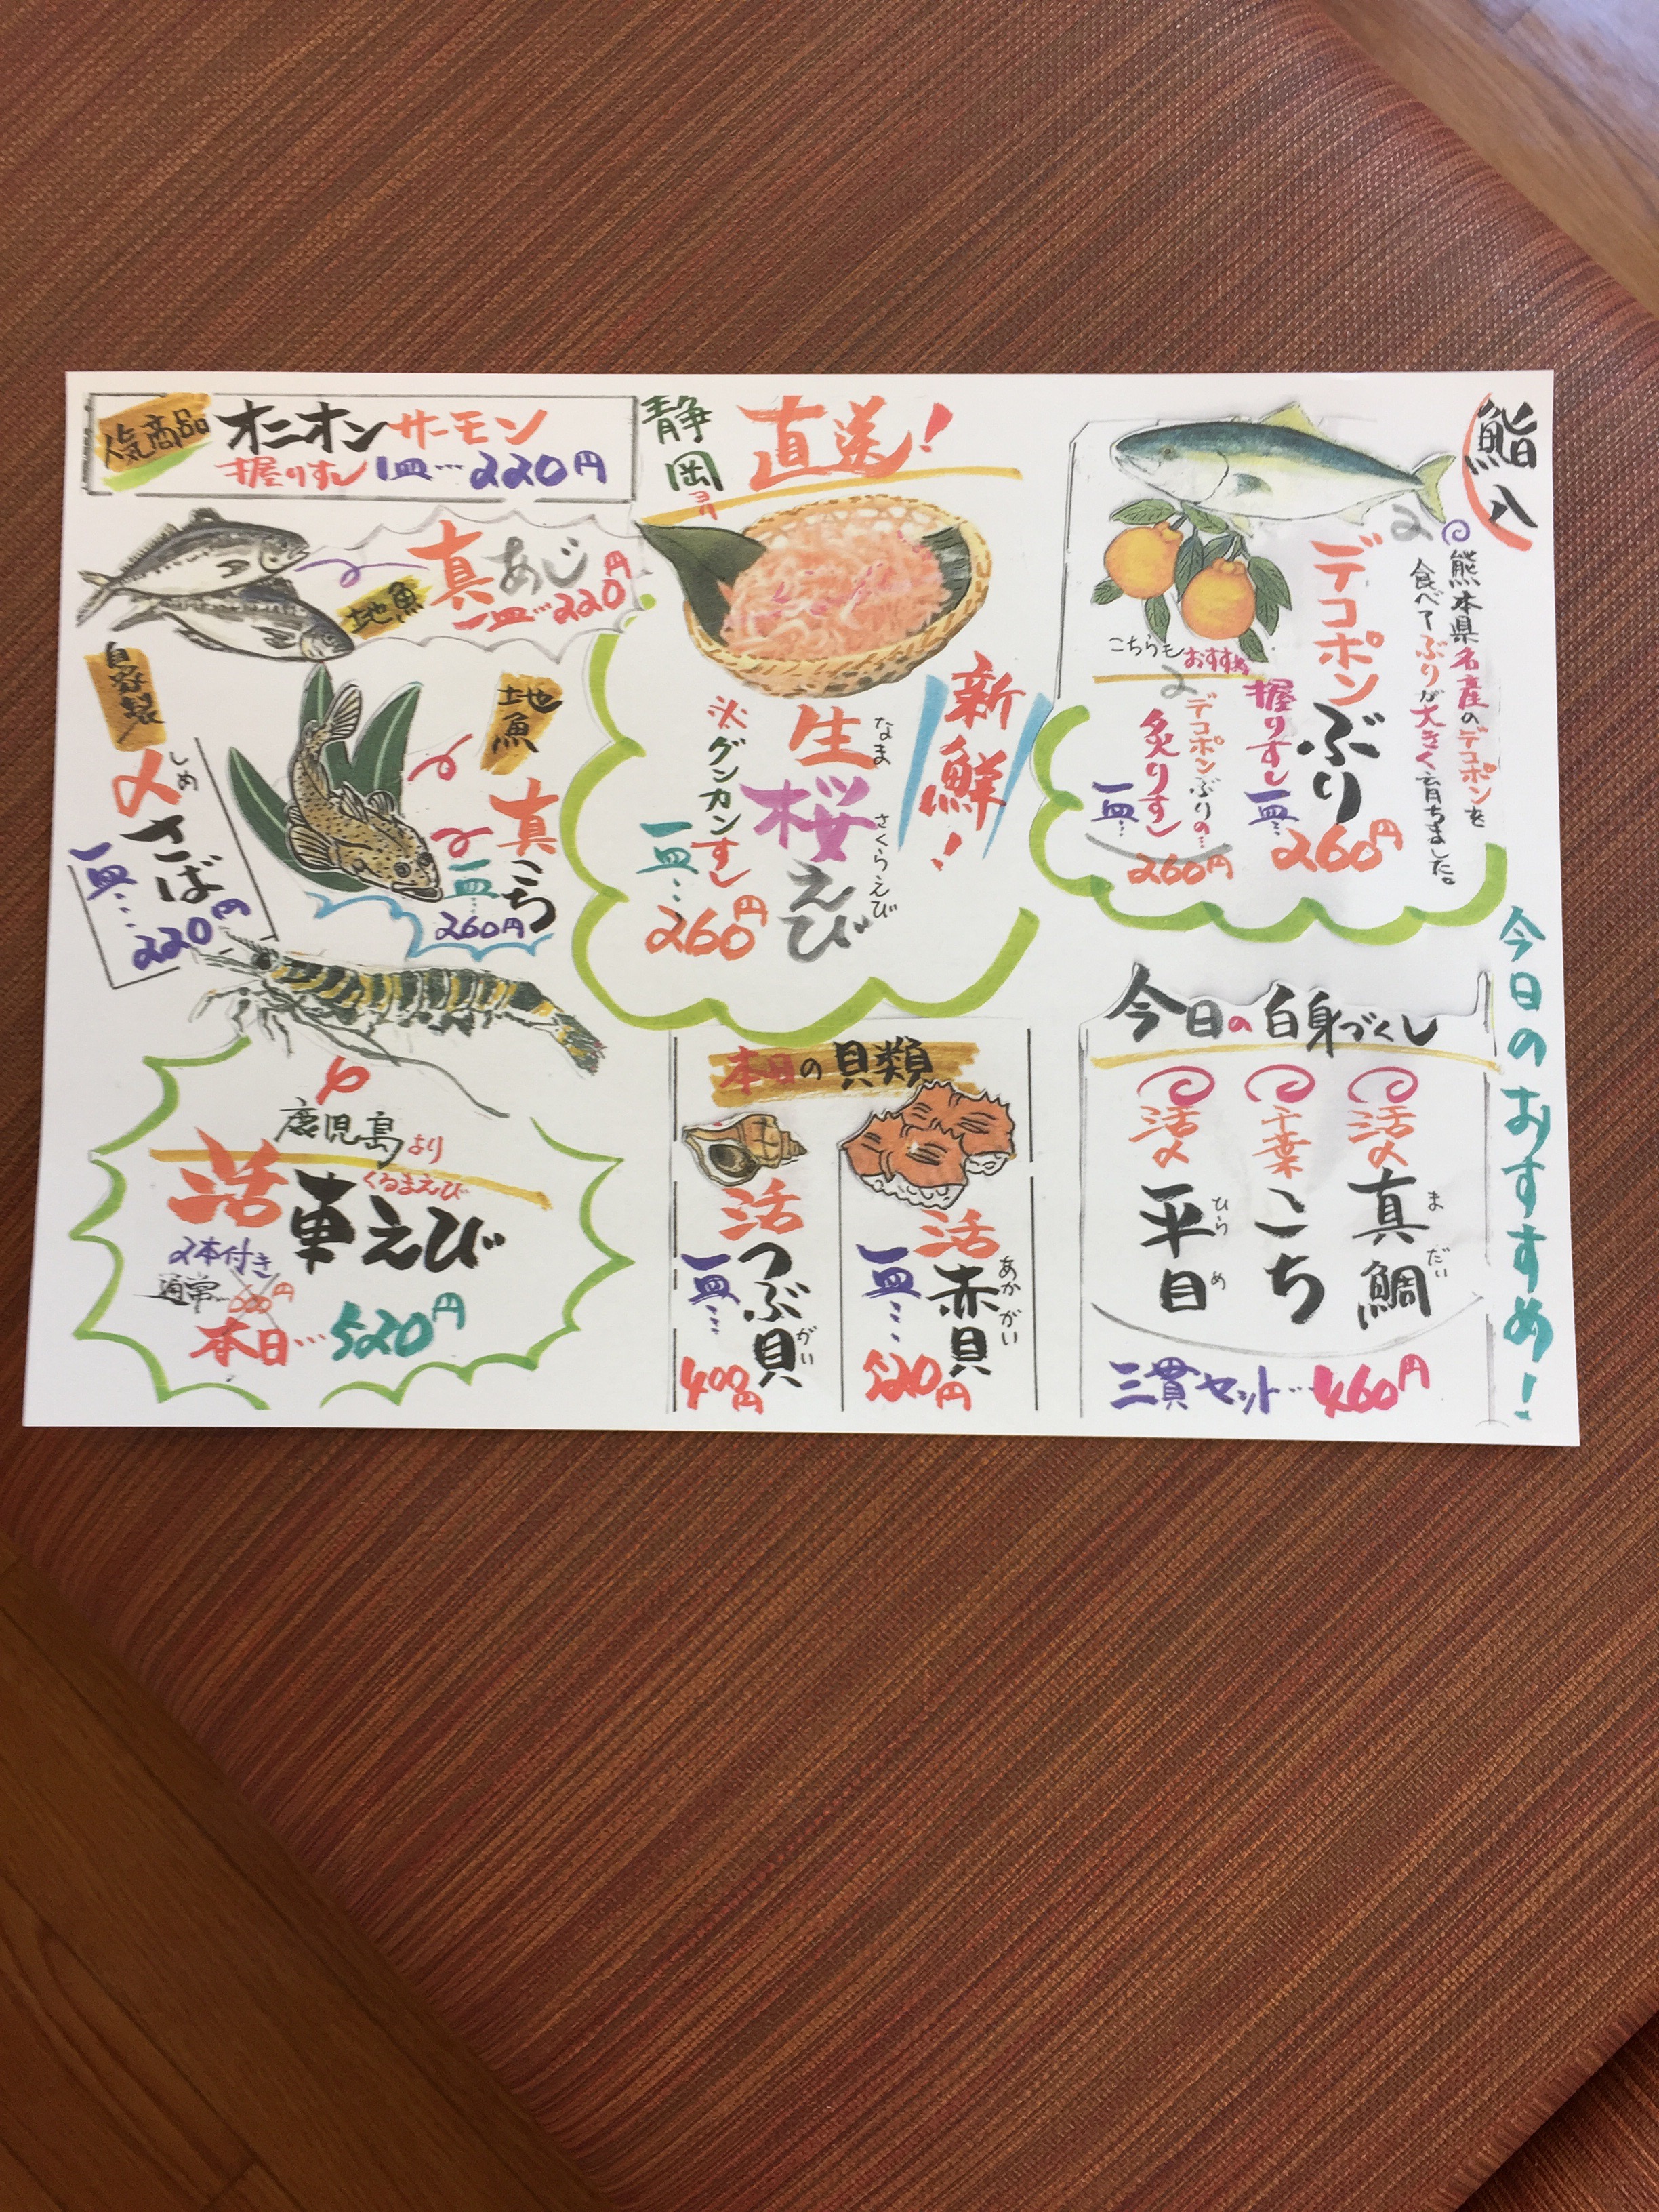 鮨八
今日のおすすめ！
熊本県名産のデコポンを
食べてぶりが大きく育ちました。
デコポンぶり
握りすし一皿…260円
こちらもおすすめ
デコポンぶりの…
炙りすし
一皿…260円
今日の白身づくし
活〆真鯛
まだい
千葉こち
活〆平目
ひらめ
三貫セット…460円
静岡ヨリ直送！
新鮮！
生桜えび
なまさくらえび
※グンカンすし
一皿…260円
本日の貝類
活赤貝
あかがい
一皿…520円
活つぶ貝
がい
一皿…400円
人気商品
オニオンサーモン
握りすし1皿…220円
真あじ
地魚
一皿…220円
地魚
真こち
一皿…260円
自家製
〆さば
しめ
一皿…220円
鹿児島より
活車えび
くるまえび
2本付き
通常
本日…520円